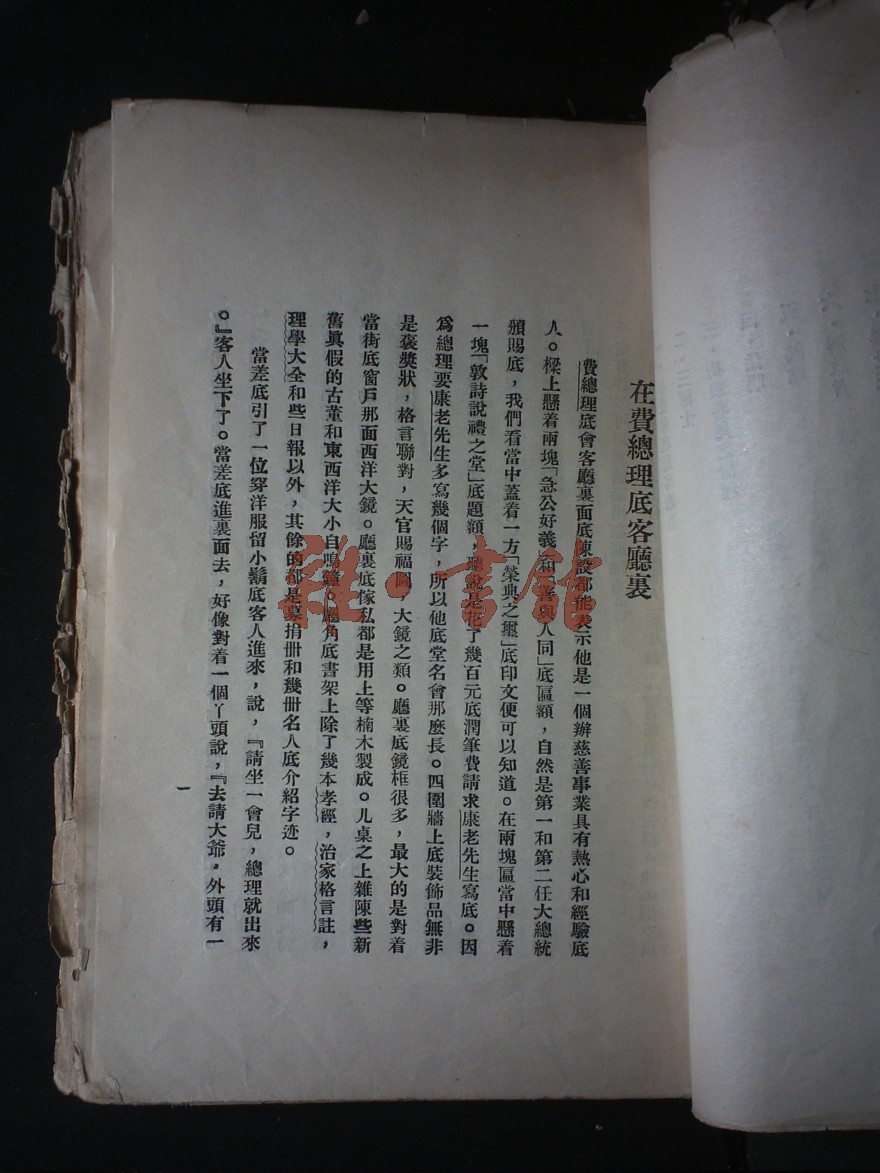 在費總理底客廳裏
費總理底會客廳裏面底陳設都能表示他是一個辦慈善事業具有熱心和經驗底
人。樑上懸着兩塊「急公好義」和「善與人同」底匾額，自然是第一和第二任大總統
頒賜底，我們看當中蓋着一方「榮典之璽」底印文便可以知道。在兩塊匾當中懸着
一塊「敦詩說禮之堂」底題額，聽說是花了幾百元底潤筆費請求康老先生寫底。因
爲總理要康老先生多寫幾個字，所以他底堂名會那麼長。四圍牆上底裝飾品無非
是褒獎狀，格言聯對，天官賜福圖，大鏡之類。廳裏底鏡框很多，最大的是對着
當街底窗戶那面西洋大鏡。廳裏底傢私都是用上等楠木製成。几桌之上雜陳些新
舊眞假的古董和東西洋大小自鳴鐘。廳角底書架上除了幾本孝經，治家格言註，
理學大全和些日報以外，其餘的都是募捐冊和幾冊名人底介紹字迹。
當差底引了一位穿洋服留小鬍底客人進來，說，『請坐一會兒，總理就出來
。』客人坐下了。當差底進裏面去，好像對着一個丫頭說，『去請大爺。外頭有一
一
雜·書館